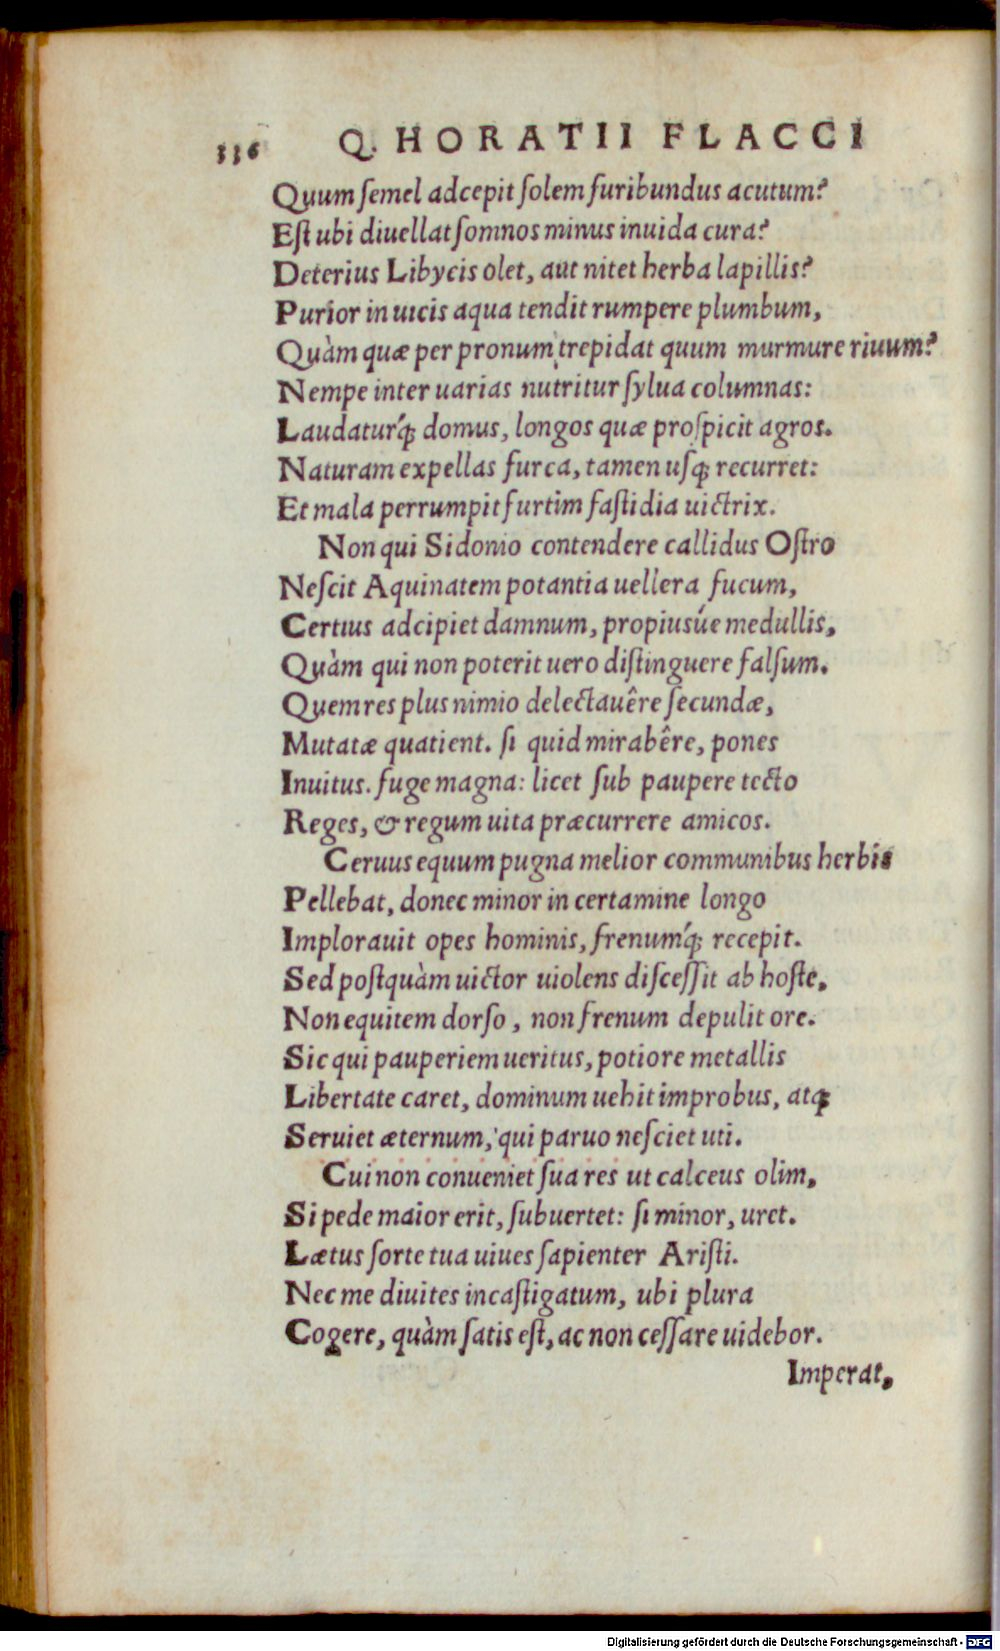 336 Q. HORATII FLACCI
Quum ſemel adcepit ſolem furibundus acutum?
Eſt ubi diuellat ſomnos minus inuida cura?
Deterius Libycis olet, aut nitet herba lapillis?
Purior in uicis aqua tendit rumpere plumbum,
Quàm quæ per pronum trepidat quum murmure riuum?
Nempe inter uarias nutritur ſylua columnas:
Laudaturq́; domus, longos quæ proſpicit agros.
Naturam expellas furca, tamen uſq; recurret:
Et mala perrumpit furtim faſtidia uictrix.
Non qui Sidonio contendere callidus Oſtro
Neſcit Aquinatem potantia uellera fucum,
Certius adcipiet damnum, propiusúe medullis,
Quàm qui non poterit uero diſtinguere falſum.
Quem res plus nimio delectauêre ſecundæ,
Mutatæ quatient. ſi quid mirabêre, pones
Inuitus. fuge magna: licet ſub paupere tecto
Reges, & regum uita præcurrere amicos.
Ceruus equum pugna melior communibus herbis
Pellebat, donec minor in certamine longo
Implorauit opes hominis, frenumq́; recepit.
Sed poſtquàm uictor uiolens diſceſſit ab hoſte,
Non equitem dorſo, non frenum depulit ore.
Sic qui pauperiem ueritus, potiore metallis
Libertate caret, dominum uehit improbus, atq;
Seruiet æternum, qui paruo neſciet uti.
Cui non conueniet ſua res ut calceus olim,
Si pede maior erit, ſubuertet: ſi minor, uret.
Lætus ſorte tua uiues ſapienter Ariſti.
Nec me diuites incaſtigatum, ubi plura
Cogere, quàm ſatis eſt, ac non ceſſare uidebor.
Imperat,
Digitalisierung gefördert durch die Deutsche Forschungsgemeinschaft - DFG